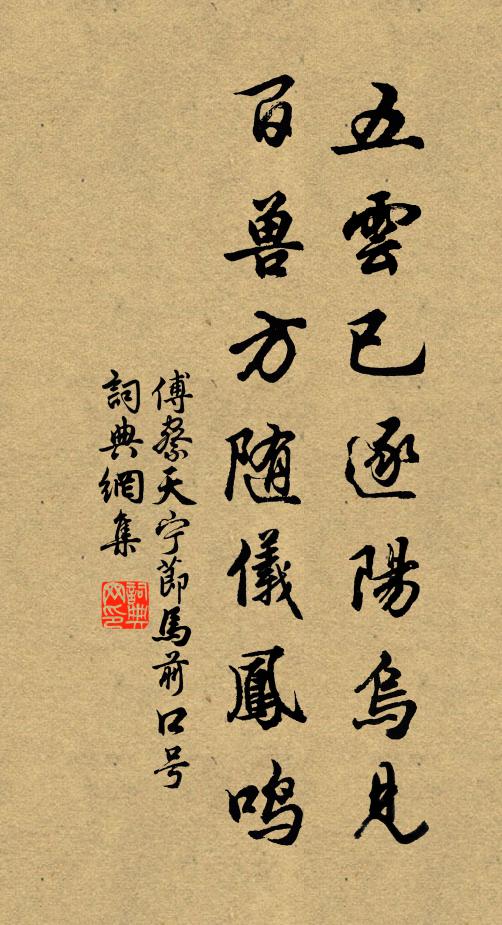 五雲已逐陽烏見
百兽方随儀鳳鸣
傅察天宁節馬前口号
詞典網集
詞典网印